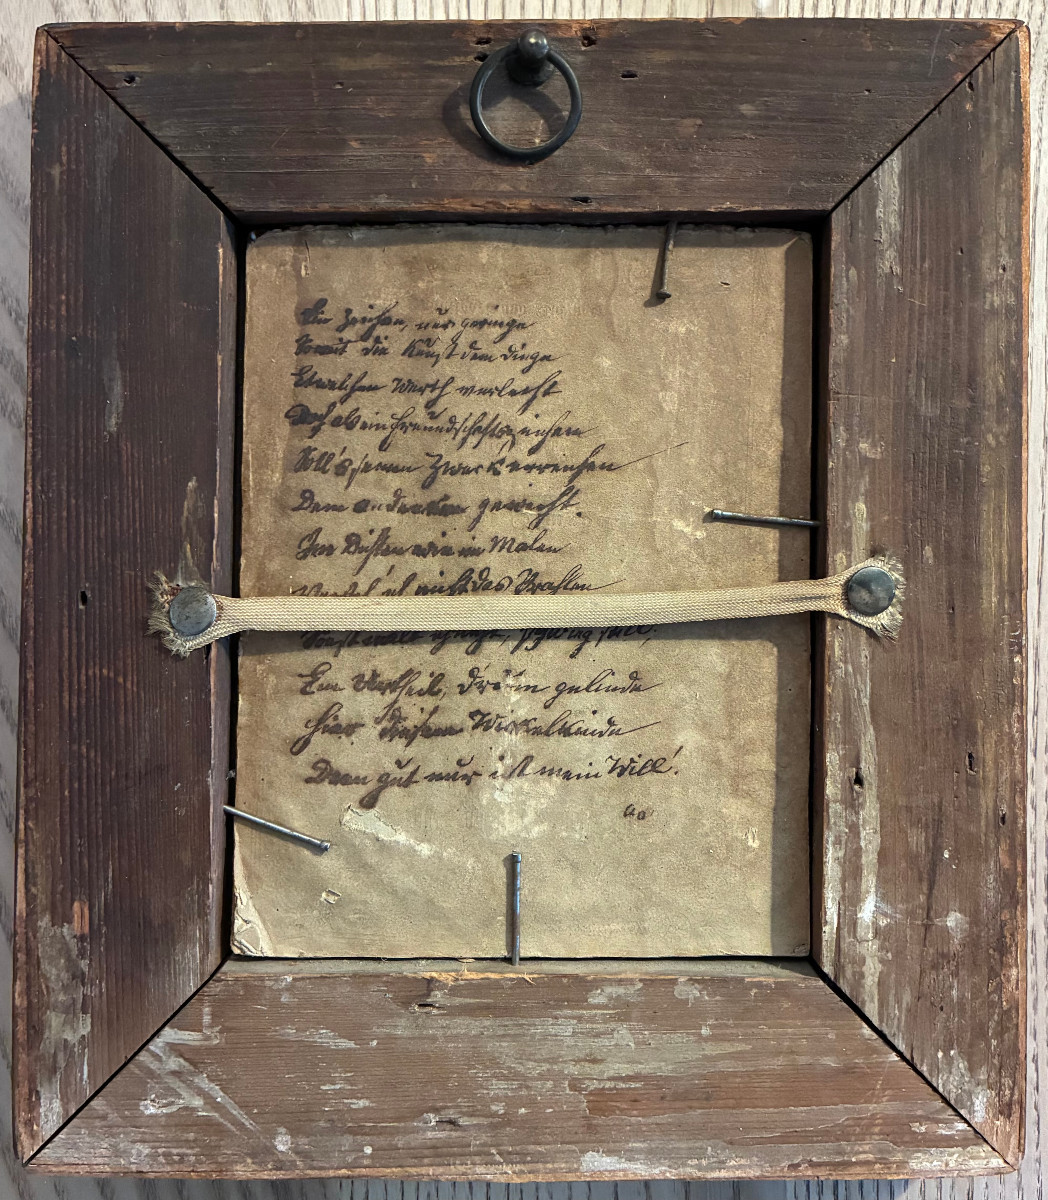 Ein Zeichen, nur geringe
Womit die Kunst dem Dinge
Etwelchen Werth verleiht
Doch als ein Freundschaftszeichen
Soll's seinen Zweck erreichen
Dem Andenken geweiht.
Im Dichten wie im Malen
ich nicht das Prahlen
Sonst schwieg still.
Ein Urtheil, drum gelinde
Hier diesem Wickelkinde
Denn gut nur ist mein Will'!